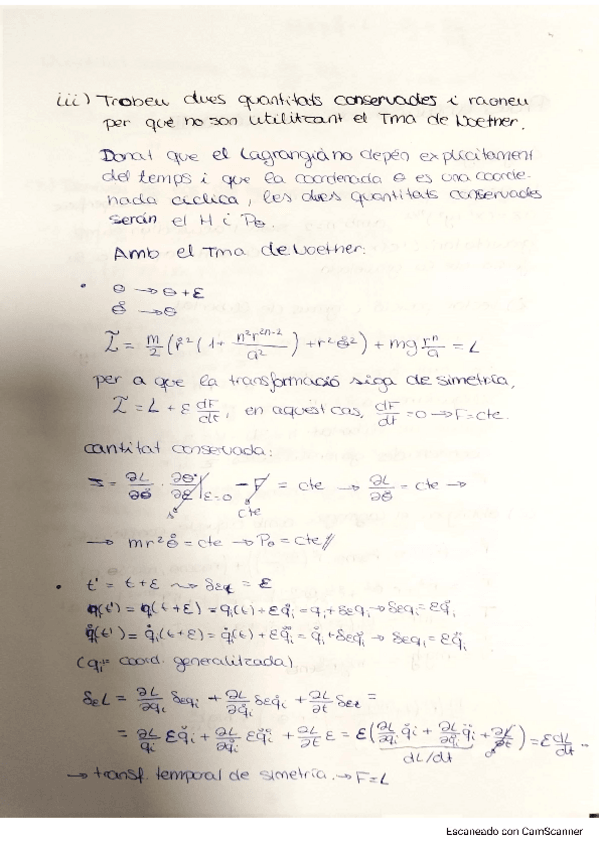 iii) Trobeu dues quantitats conservades i raoneu
per què no son utilitzant el Tma de Noether.
Donat que el Lagrangià no depén explícitament
del temps i que la coordenada θ es una coorde-
nada cíclica, les dues quantitats conservades
serán el H i Pθ.
Amb el Tma de Noether:
• θ → θ + ε
θ̇ → θ̇
L̃ = m/2 (ṙ² (1 + n²r²ⁿ⁻²/a²) + r²θ̇²) + mg rⁿ/a = L
per a que la transformació siga de simetría,
L̃ = L + ε dF/dt, en aquest cas, dF/dt = 0 → F = cte.
cantitat conservada:
J = ∂L/∂θ̇ · ∂θ'/∂ε |ε=0 - F = cte → ∂L/∂θ̇ = cte →
1 cte
→ mr²θ̇ = cte → Pθ = cte //
• t' = t + ε ⇝ δεt = ε
qi(t') = qi(t + ε) = qi(t) + εq̇i = qi + δεqi → δεqi = εq̇i
q̇i(t') = q̇i(t + ε) = q̇i(t) + εq̈i = q̇i + δεq̇i → δεq̇i = εq̈i
(qi = coord. generalitzada)
δεL = ∂L/∂qi δεqi + ∂L/∂q̇i δεq̇i + ∂L/∂t δεt =
= ∂L/∂qi εq̇i + ∂L/∂q̇i εq̈i + ∂L/∂t ε = ε(∂L/∂qi q̇i + ∂L/∂q̇i q̈i + ∂L/∂t) = ε dL/dt
dL/dt
→ transf. temporal de simetría. → F = L
Escaneado con CamScanner